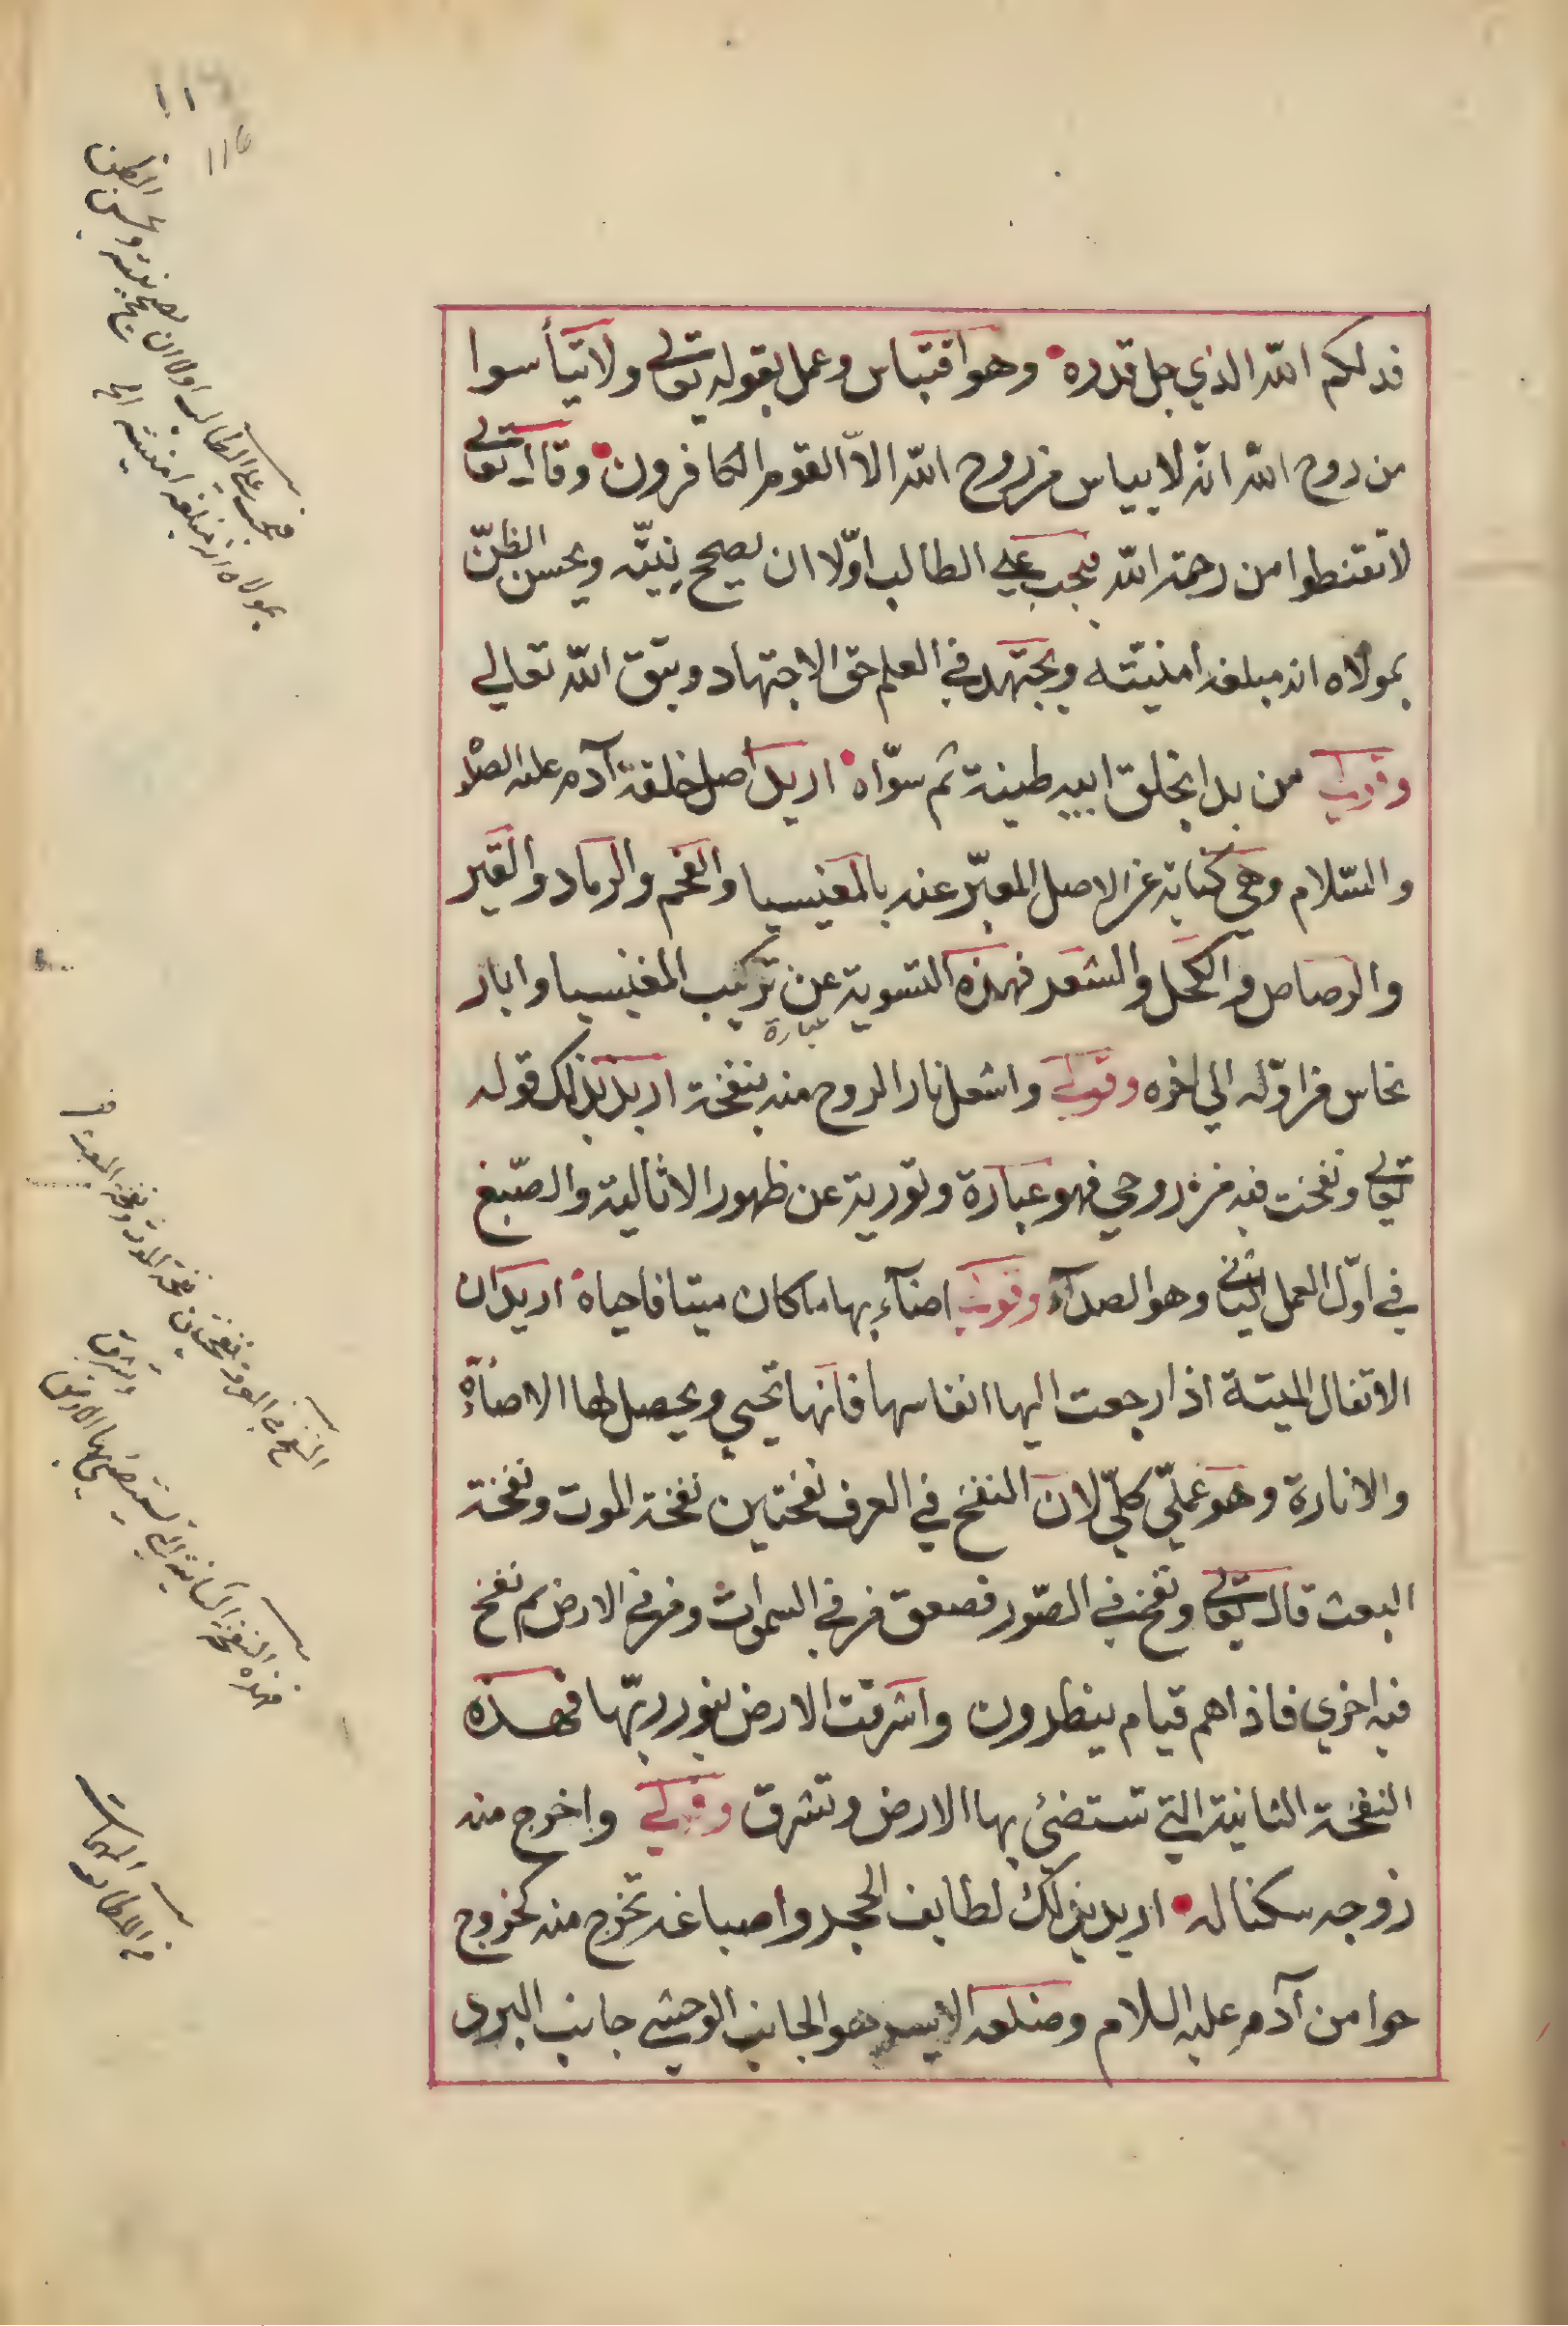 فدلكم الله الذي جل قدره وهو اقتباس وعمل بقوله تعالى ولا تيأسوا
من روح الله انه لا ييأس من روح الله الا القوم الكافرون وقال تعالى
لا تقنطوا من رحمة الله فيجب على الطالب اوّلا ان يصحح نيّته ويحسن الظنّ
بمولاه انه مبلغه امنيّته ويجتهد في العلم حق الاجتهاد ويتق الله تعالي
وقولي من بدا بخلق ابيه طينة ثم سوّاه اريد اصل خلقة آدم عليه الصلاة
والسّلام وهي كناية عن الاصل المعبّر عنه بالمغنيسيا والفحم والرماد والقير
والرصاص والكحل والشعر فهذه التسوية عبارة عن تركيب المغنيسيا وابار
نحاس من اوّله الي اخره وقولي واشعل نار الروح منه بنفخة اريد بذلك قوله
تعالى ونفخت فيه من روحي فهو عبارة وتورية عن ظهور الاثالية والصّبغ
في اوّل العمل الثاني وهو الصدآء وقولي اضآء بها ما كان ميتا فاحياه اريد ان
الاتفال الميتة اذا رجعت اليها انفاسها فانها تحيي ويحصل لها الاضآة
والانارة وهو عمليّ كلّي لان النفخ في العرف نفختين نفخة الموت ونفخة
البعث قال تعالى ونفخ في الصّور فصعق من في السموات ومن في الارض ثم نفخ
فيه اخري فاذا هم قيام ينظرون واشرقت الارض بنور ربّها فهذه
النفخة الثانية التي تستضئ بها الارض وتشرق وقولي واخرج منه
زوجه سكنا له اريد بذلك لطايف الحجر واصباغه تخرج منه كخروج
حوا من آدم عليه السلام وضلعه الايسر هو الجانب الوحشي جانب البرد
فيجب على الطالب اولا ان يصحح نيته ويحسن الظن
بمولاه انه مبلغه امنيته الخ
النفخ في العرف نفختين نفخة الموت ونفخة البعث
فهذه النفخة الثانية التي تستضئ بها الارض
وتشرق